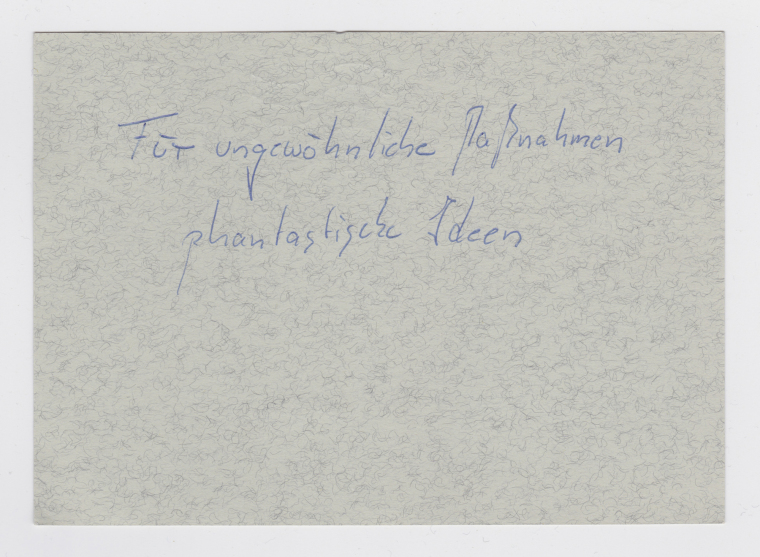 Für ungewöhnliche Maßnahmen
phantastische Ideen